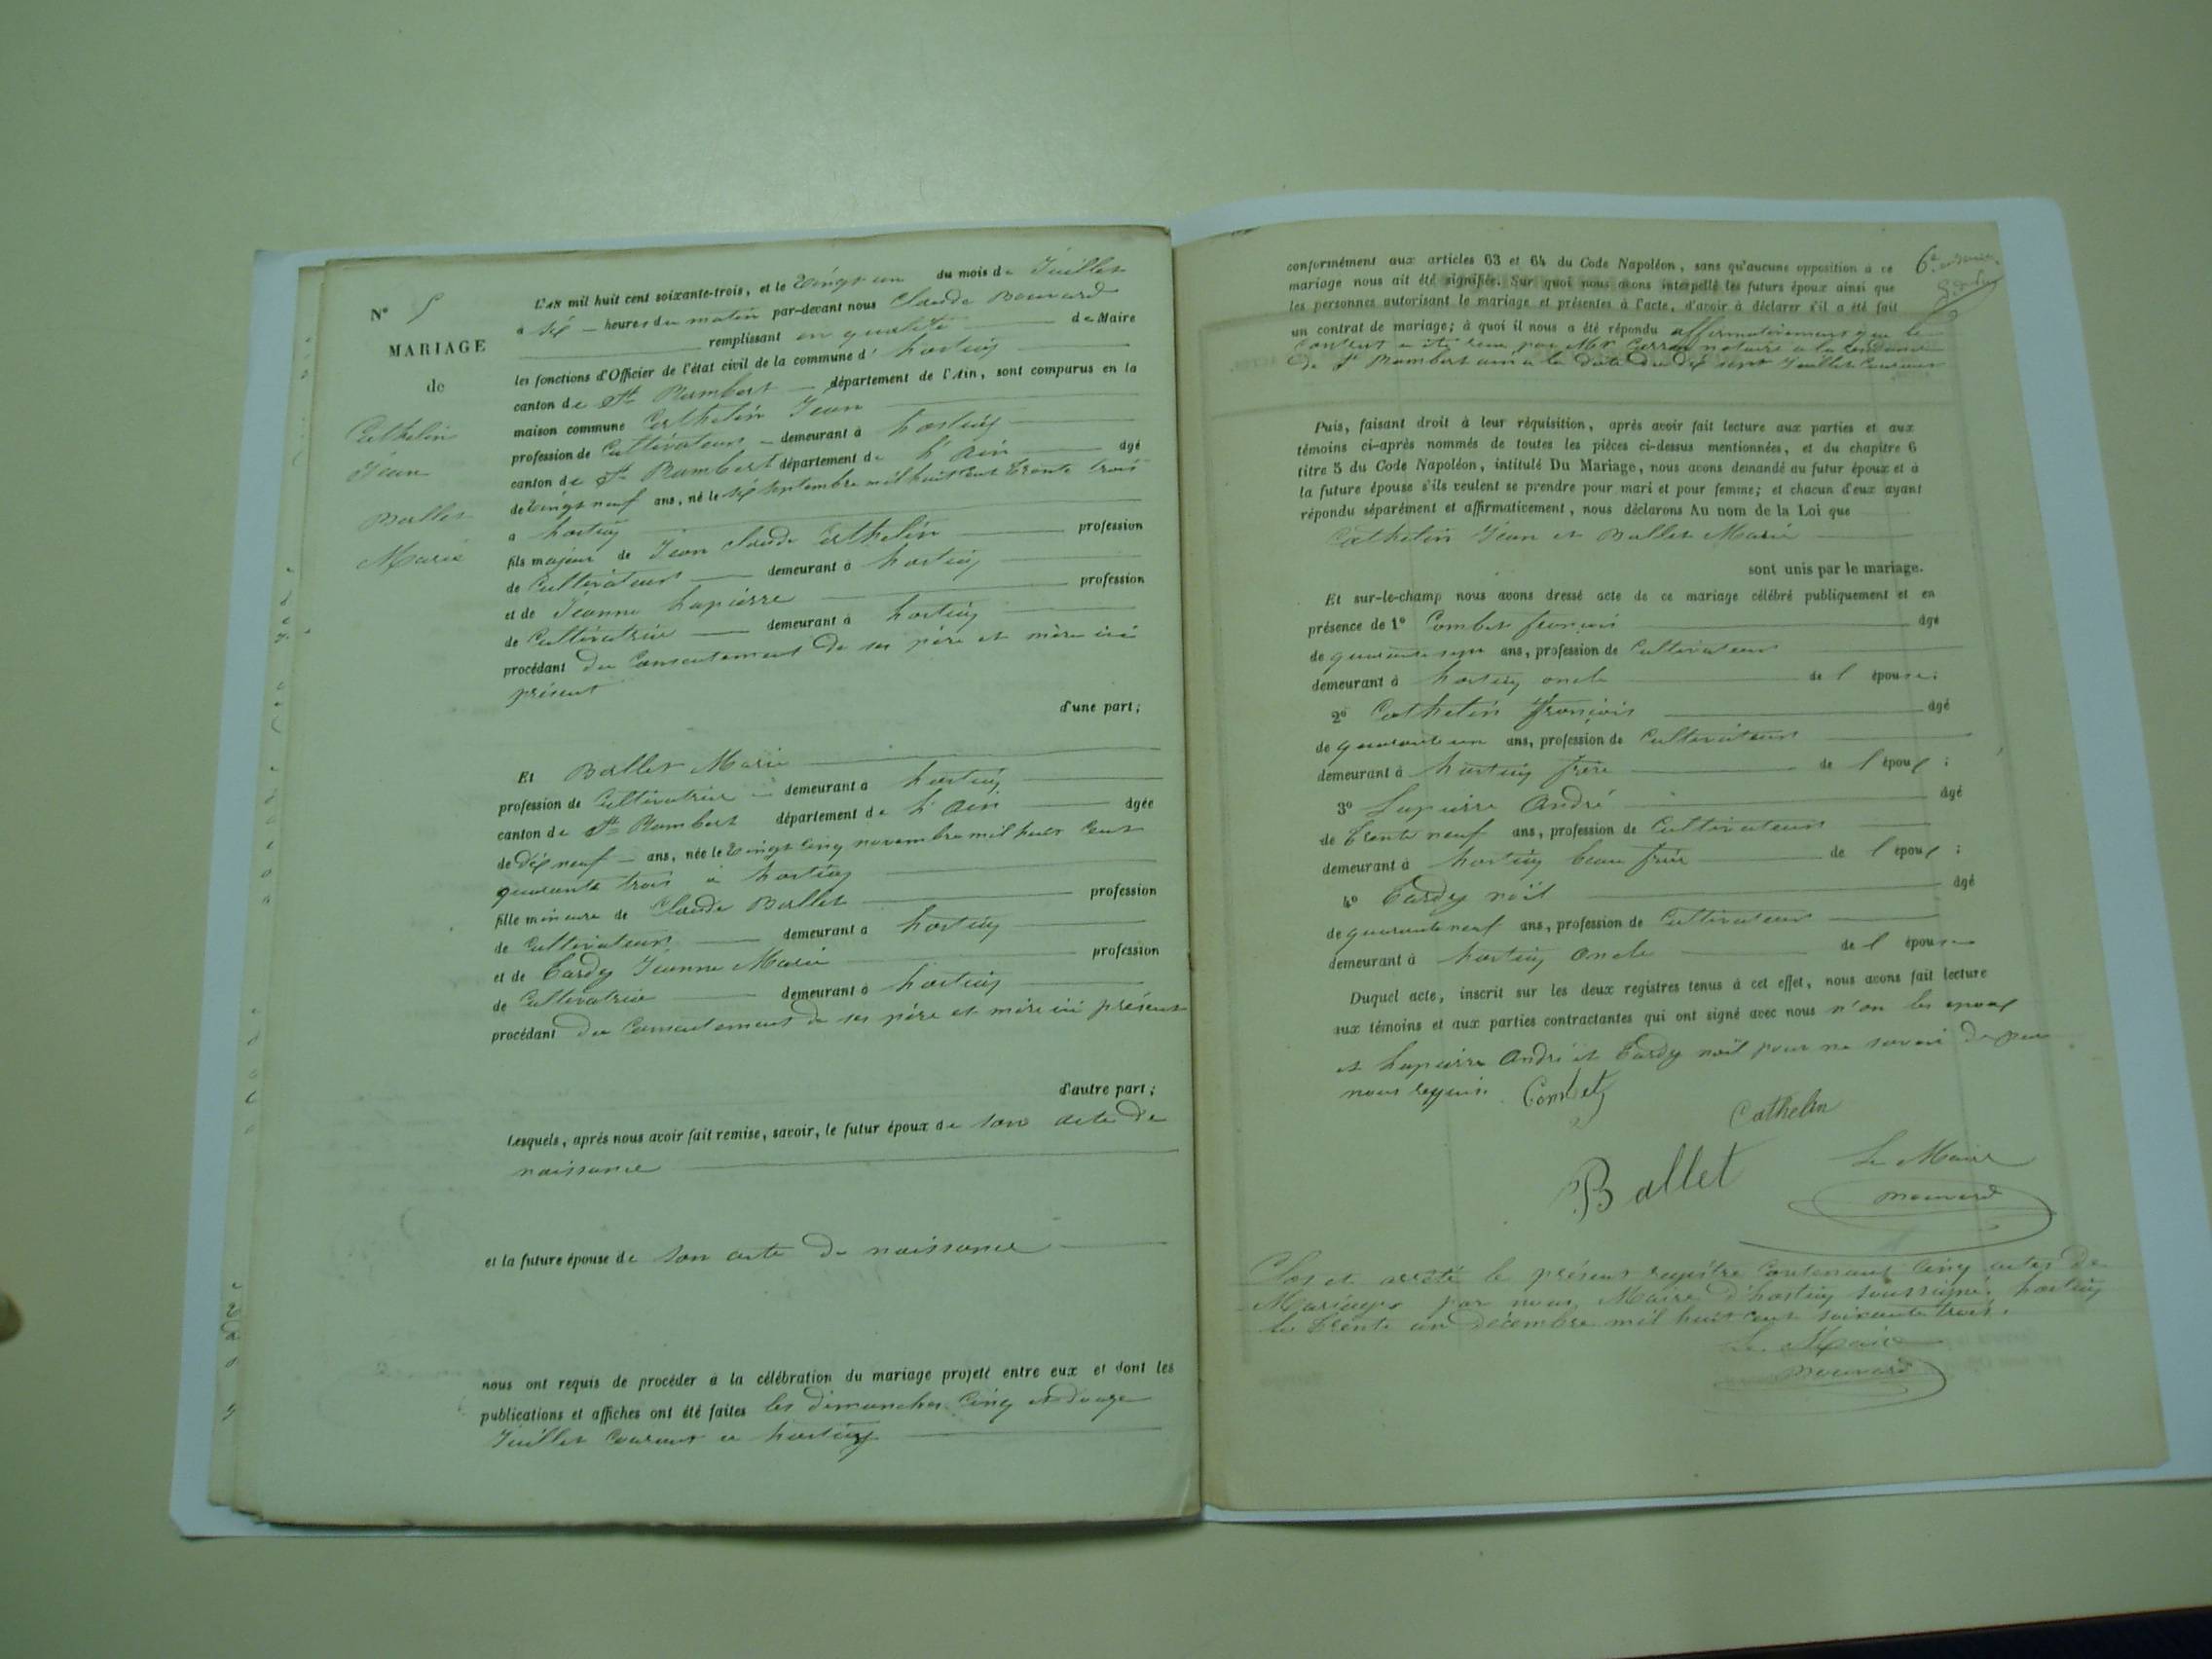 N° 5
MARIAGE
de
Cathelin
Jean
Ballet
Marie
L'AN mil huit cent soixante-trois, et le vingt un du mois de Juillet
à dix heures du matin par-devant nous Claude Bouvard
remplissant en qualité de Maire
les fonctions d'Officier de l'état civil de la commune d' hostiaz
canton de St Rambert département de l'Ain, sont comparus en la
maison commune Cathelin Jean
profession de Cultivateur demeurant à hostiaz
canton de St Rambert département de L'Ain âgé
de vingt neuf ans, né le dix septembre mil huit cent trente trois
à hostiaz
fils majeur de Jean Claude Cathelin profession
de Cultivateur demeurant à hostiaz
et de Jeanne Lapierre profession
de Cultivatrice demeurant à hostiaz
procédant du Consentement de ses père et mère ici
présent
d'une part;
Et Ballet Marie
profession de Cultivatrice demeurant à hostiaz
canton de St Rambert département de L'Ain âgée
de dix neuf ans, née le vingt cinq novembre mil huit cent
quarante trois à hostiaz
fille mineure de Claude Ballet profession
de Cultivateur demeurant à hostiaz
et de Tardy Jeanne Marie profession
de Cultivatrice demeurant à hostiaz
procédant du Consentement de ses père et mère ici présent
d'autre part;
Lesquels, après nous avoir fait remise, savoir, le futur époux de son acte de
naissance
et la future épouse de son acte de naissance
nous ont requis de procéder à la célébration du mariage projeté entre eux et dont les
publications et affiches ont été faites les dimanches cinq et douze
Juillet Courant à hostiaz
6e
conformément aux articles 63 et 64 du Code Napoléon, sans qu'aucune opposition à ce
mariage nous ait été signifiée. Sur quoi nous avons interpellé les futurs époux ainsi que
les personnes autorisant le mariage et présentes à l'acte, d'avoir à déclarer s'il a été fait
un contrat de mariage; à quoi il nous a été répondu affirmativement que le
Contrat a été reçu par Mr notaire à la résidence
de St Rambert ain à la date du dix sept Juillet Courant
Puis, faisant droit à leur réquisition, après avoir fait lecture aux parties et aux
témoins ci-après nommés de toutes les pièces ci-dessus mentionnées, et du chapitre 6
titre 5 du Code Napoléon, intitulé Du Mariage, nous avons demandé au futur époux et à
la future épouse s'ils veulent se prendre pour mari et pour femme; et chacun d'eux ayant
répondu séparément et affirmativement, nous déclarons Au nom de la Loi que
Cathelin Jean et Ballet Marie
sont unis par le mariage.
Et sur-le-champ nous avons dressé acte de ce mariage célébré publiquement et en
présence de 1° Combet françois âgé
de quarante sept ans, profession de Cultivateur
demeurant à hostiaz oncle de l'épouse;
2° Cathelin françois âgé
de quarante un ans, profession de Cultivateur
demeurant à hostiaz frère de l'époux;
3° Lapierre André âgé
de trente neuf ans, profession de Cultivateur
demeurant à hostiaz beau frère de l'époux;
4° Tardy noël âgé
de quarante neuf ans, profession de Cultivateur
demeurant à hostiaz oncle de l'épouse
Duquel acte, inscrit sur les deux registres tenus à cet effet, nous avons fait lecture
aux témoins et aux parties contractantes qui ont signé avec nous n'on les epoux
et Lapierre André et Tardy noël pour ne savoir de par
nous requis. Combet
Cathelin
Ballet
Le Maire
Bouvard
Clos et arrêté le présent registre Contenant Cinq actes de
Mariages par nous Maire d'hostiaz soussigné. hostiaz
le trente un décembre mil huit cent soixante trois.
Le Maire
Bouvard